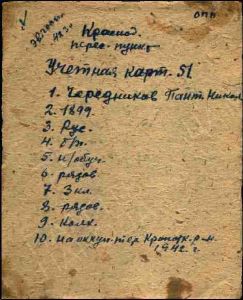 опп
Краснод.
перес. пункт
Учетная карт. 51
1. Чередников Пант. Никол.
2. 1899.
3. Рус.
4. б/п.
5. н/обуч.
6. рядов
7. 3 кл.
8. рядов.
9. Колх.
10. на оккуп. тер. Кропотк. р-н.
1942 г.